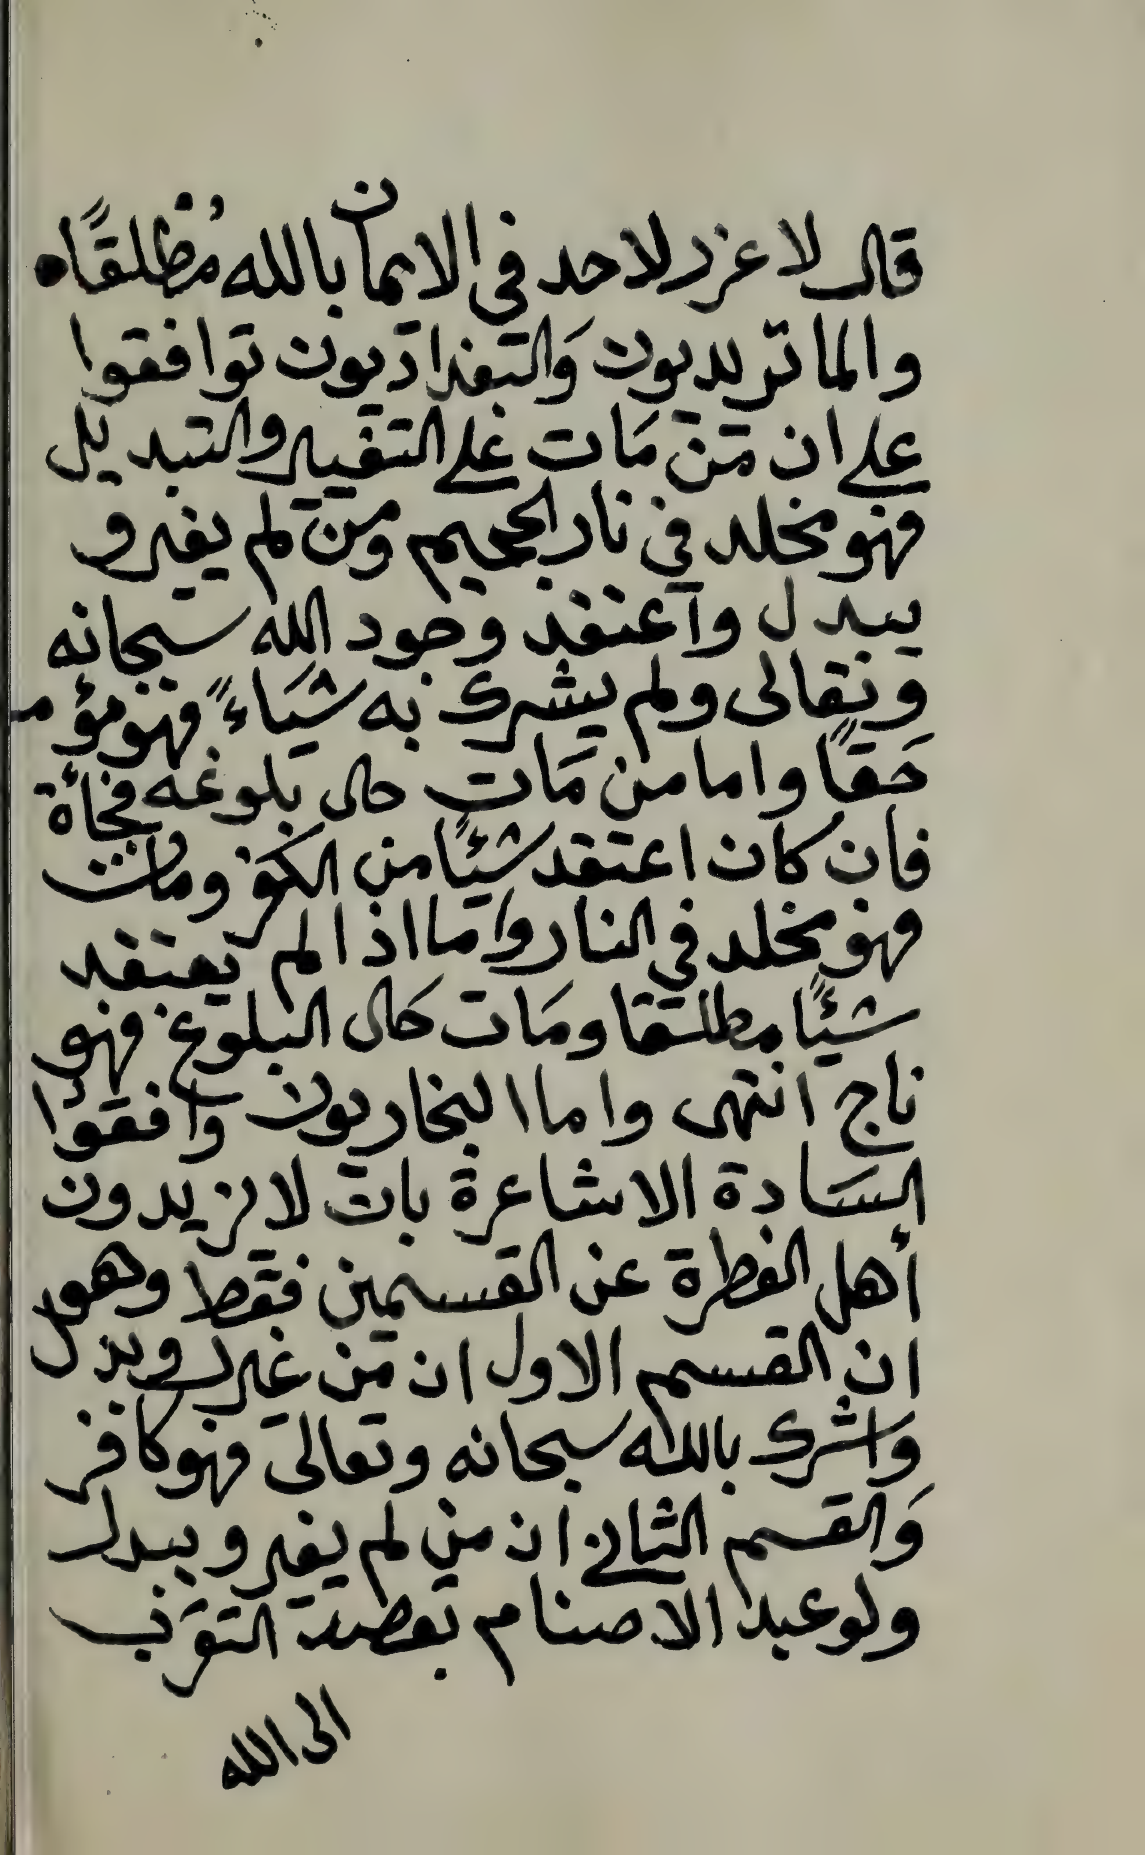 قال لا عزر لاحد في الايمان بالله مُطلقًا
والماتريديون والبغداديون توافقوا
على ان من مَات على التغيير والتبديل
فهو مخلد في نار الجحيم ومن لم يغير و
يبدل واعتقد وجود الله سبحانه
وتعالى ولم يشرك به شيَاءً فهو مؤمـ
حَقًا واما من مَات حال بلوغه فجأة
فان كان اعتقد شيئًا من الكفر ومات
فهو مخلد في النار واما اذا لم يعتقد
شيئًا مطلقا ومَات حَال البلوغ فهو
ناج انتهى واما البخاريون وافقوا
السَادة الاشاعرة بات لا نزيدون
أهل الفطرة عن القسمين فقط وهو
ان القسم الاول ان من غير وبدل
وَاشرك بالله سبحانه وتعالى فهو كافر
وَالقسم الثاني ان من لم يغير ويبدل
ولو عبد الاصنام بقصد التقرب
الى الله